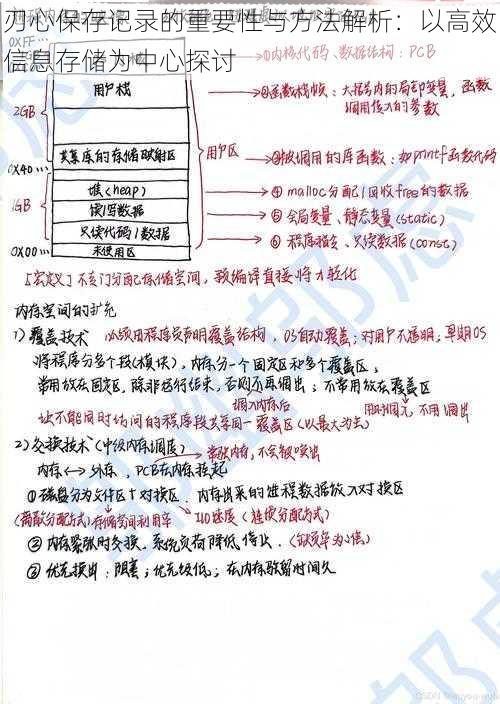 刃心保存记录的重要性与方法解析：以高效
信息存储为中心探讨
0XFF...
①内核代码、数据结构：PCB
用户栈
②函数栈帧：大括号内的局部变量，函数
调用传入的参数
2GB
用户区
共享库的存储映射区
③被调用的库函数：如printf函数代码
0X40...
堆(heap)
④ malloc分配/回收free的数据
1GB
读/写数据
⑤ 全局变量、静态变量(static)
只读代码/数据
⑥ 程序指令、只读数据(const)
0X00...
未使用区
[宏定义] 不专门分配存储空间，预编译直接将
内存空间的扩充
1) 覆盖技术
必须用程序员声明覆盖结构，OS自动覆盖；对用户不透明；早期OS
将程序分多个段(模块)，内存分一个固定区和多个覆盖区；
常用放在固定区，除非运行结束，否则不再调出；不常用放在覆盖区
调入内存后
用时调入，不用调出
让不能同时访问的程序段共享同一覆盖区(以最大为主)
2) 交换技术(中级内存调度)
常驻内存，不会被换出
内存↔外存，PCB在内存挂起
①磁盘分为文件区+对换区．内存出来的进程数据放入对换区
(离散分配方式)存储空间利用率
I/O速度(连续分配方式)
② 内存紧张时交换，系统负荷降低停止．(缺页率为准)
③ 优先换出：阻塞；优先级低；在内存驻留时间久